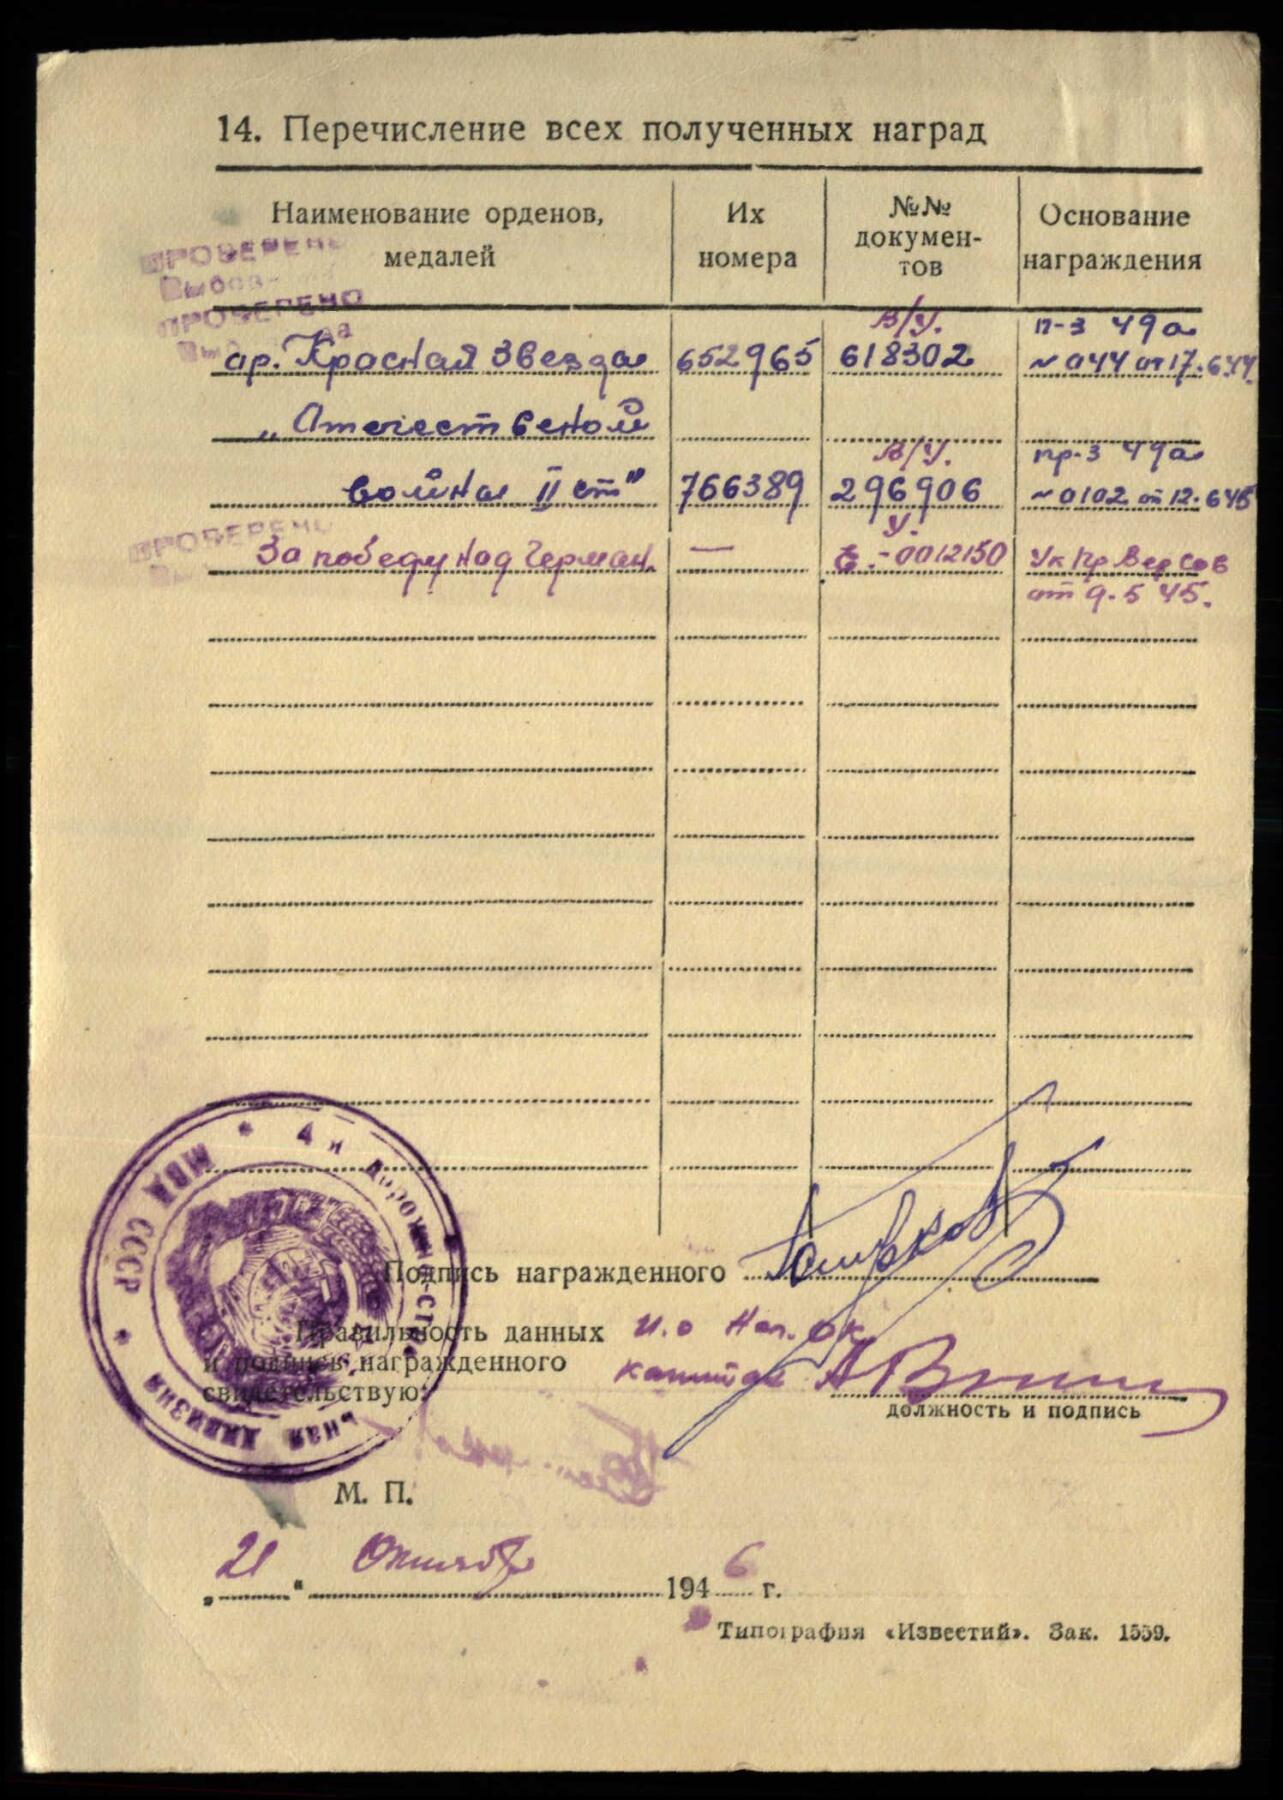 14. Перечисление всех полученных наград
Наименование орденов, медалей
Их номера
№№ докумен-тов
Основание награждения
ПРОВЕРЕНО
ПРОВЕРЕНО
В/У. п-з 49а
ор. Красная Звезда 652965 618302 № 044 от 17.6.44.
„Отечественой
В/У. пр-з 49а
война II ст" 766389 296906 № 0102 от 12.6 45
ПРОВЕРЕНО
У.
За победу над Герман. — -0012150 Ук Пр Вер Сов
от 9.5 45.
4 я ДОРОЖНО-СТРОИТЕЛЬНАЯ ДИВИЗИЯ * МВД СССР *
Подпись награжденного
Правильность данных и.о Нач. ОК
и подпись награжденного
свидетельствую: капитан
должность и подпись
М. П.
„21" Октября 1946 г.
Типография «Известий». Зак. 1559.